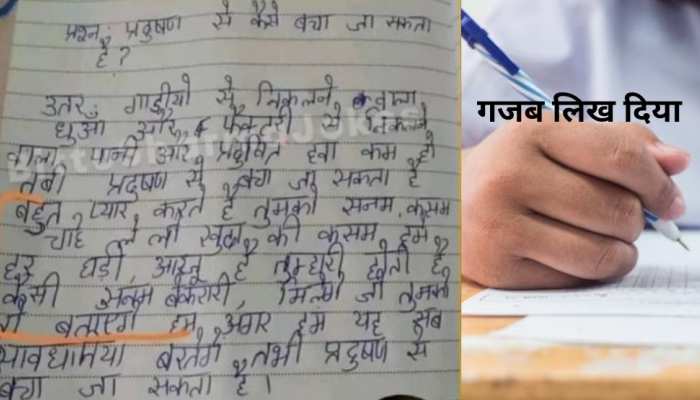 प्रश्न: प्रदुषण से कैसे बचा जा सकता
है?
उतर: गाडीयो से निकलने वाला
धुआँ और फैक्टरी से निकलने
वाला पानी और प्रदुषित हवा कम हो
तभी प्रदुषण से बचा जा सकता है
बहुत प्यार करते है तुमको सनम, कसम
चाहे ले लो खुदा की कसम, हमे
हर घडी आरजू है तुम्हारी, होती है
कैसी सनम बेकरारी, मिलोगे जो तुमको
तो बताएंगे हम, अगर हम यह सब
सावधानिया बरतेंगे तभी प्रदुषण से
बचा जा सकता है।
गजब लिख दिया